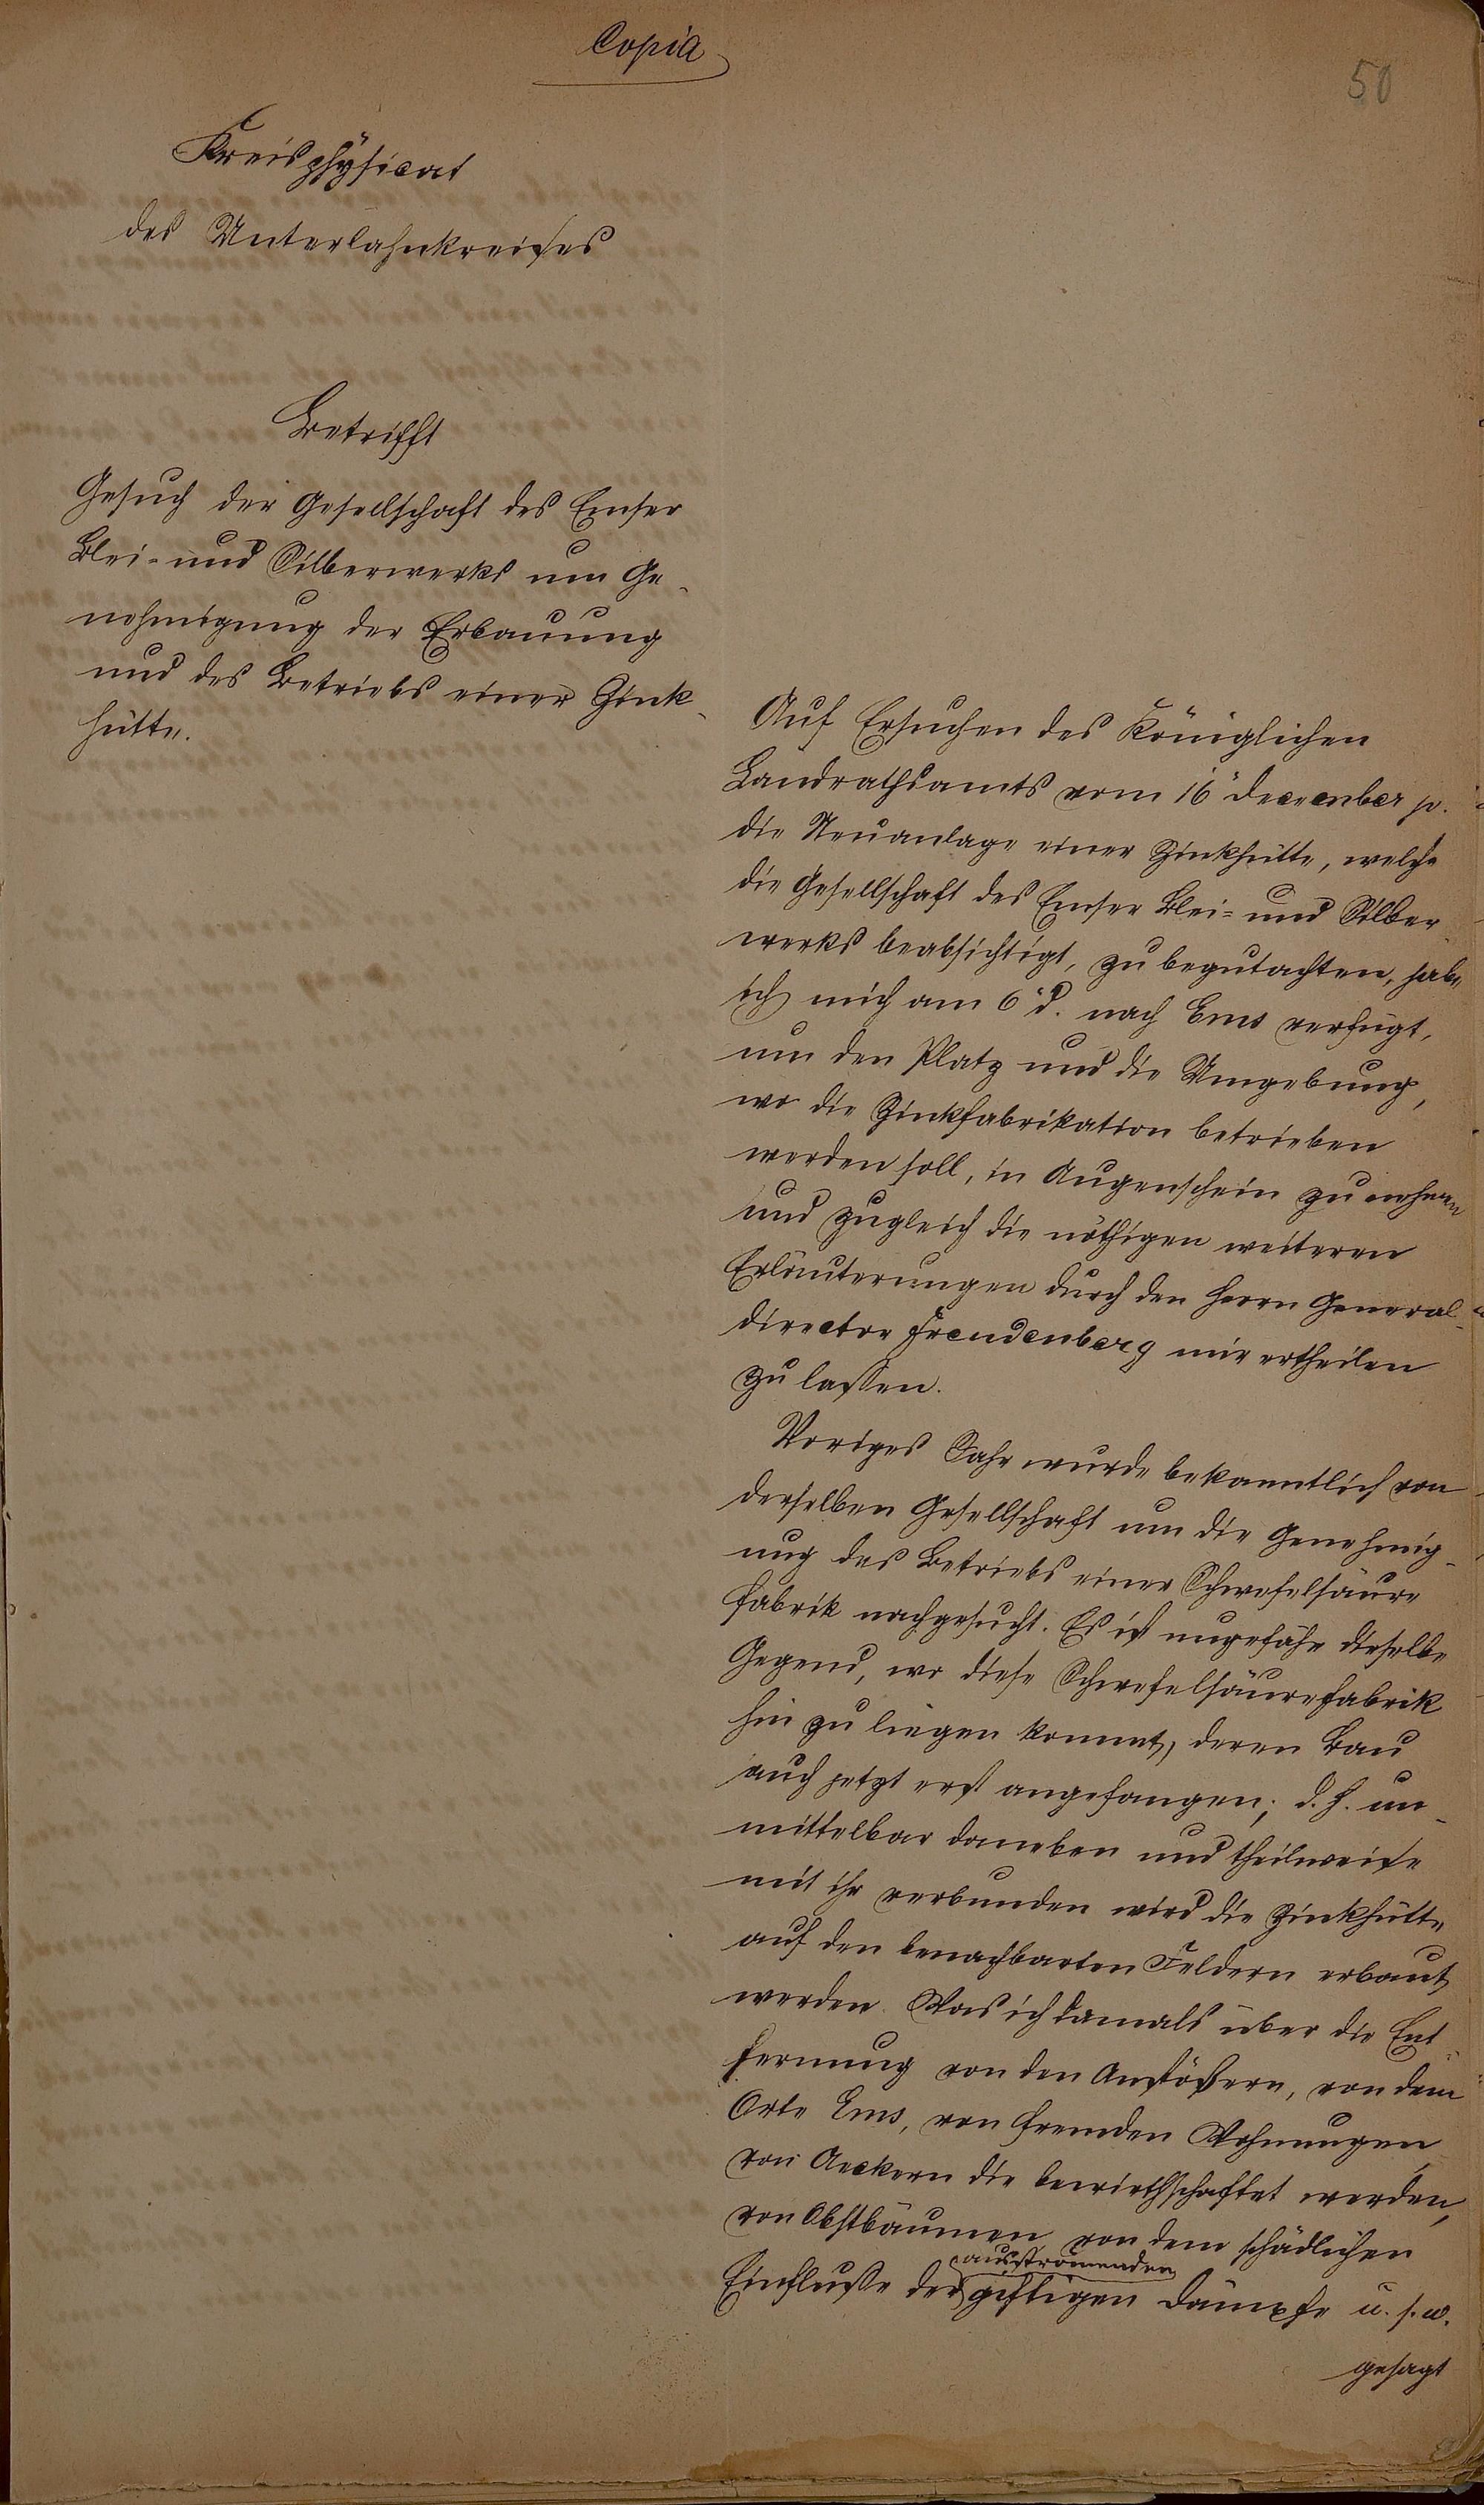 Copia
50
Kreisphÿsicat
des Unterlahnkreises
Betrifft
Gesuch der Gesellschaft des Emser
Blei- und Silberwerks um Ge-
nehmigung der Erbauung
und des Betriebs einer Zink-
hütte.
Auf Ersuchen des Königlichen
Landrathsamts vom 16" December p.
die Neuanlage einer Zinkhütte, welche
die Gesellschaft des Emser Blei- und Silber-
werks beabsichtigt, zu begutachten, habe
ich mich am 6" d. nach Ems verfügt,
um den Platz und die Umgebung,
wo die Zinkfabrikation betrieben
werden soll, in Augenschein zu nehmen
und zugleich die nöthigen weiteren
Erläuterungen durch den Herrn General-
director Freudenberg mir ertheilen
zu lassen.
Voriges Jahr wurde bekanntlich von
derselben Gesellschaft um die Genehmig-
ung des Betriebs einer Schwefelsäure
fabrik nachgesucht. Es ist ungefähr dieselbe
Gegend, wo diese Schwefelsäurefabrik
hin zu liegen kommt, deren Bau
auch jetzt erst angefangen; d. h. un-
mittelbar daneben und theilweise
mit ihr verbunden wird die Zinkhütte
auf den benachbarten Feldern erbaut
werden. Was ich damals über die Ent-
fernung von den Anstößern, von dem
Orte Ems, von fremden Wohnungen,
von Aeckern die bewirthschaftet werden,
von Obstbäumen, von dem schädlichen
ausströmenden
Einfluße der giftigen Dämpfe u. s. w.
gesagt